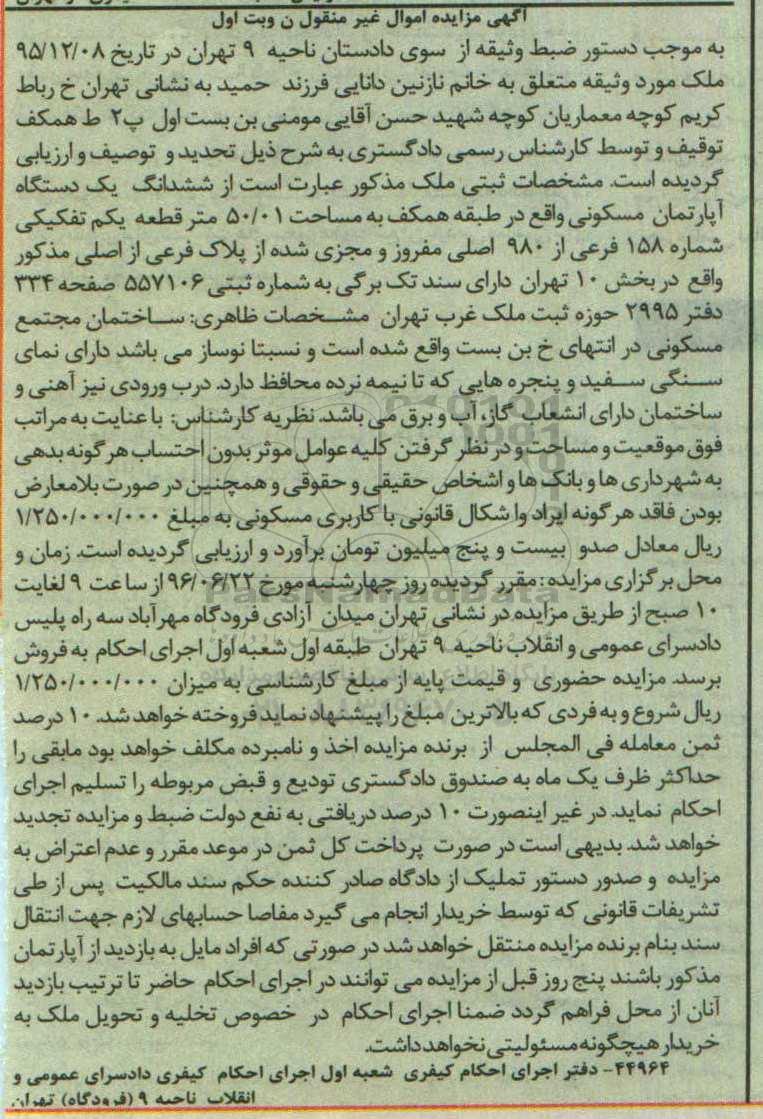 آگهی مزایده اموال غیر منقول ن وبت اول
به موجب دستور ضبط وثیقه از سوی دادستان ناحیه ۹ تهران در تاریخ ۹۵/۱۲/۰۸
ملک مورد وثیقه متعلق به خانم نازنین دانایی فرزند حمید به نشانی تهران خ رباط
کریم کوچه معماریان کوچه شهید حسن آقایی مومنی بن بست اول پ۲ ط همکف
توقیف و توسط کارشناس رسمی دادگستری به شرح ذیل تحدید و توصیف و ارزیابی
گردیده است. مشخصات ثبتی ملک مذکور عبارت است از ششدانگ یک دستگاه
آپارتمان مسکونی واقع در طبقه همکف به مساحت ۵۰/۰۱ متر قطعه یکم تفکیکی
شماره ۱۵۸ فرعی از ۹۸۰ اصلی مفروز و مجزی شده از پلاک فرعی از اصلی مذکور
واقع در بخش ۱۰ تهران دارای سند تک برگی به شماره ثبتی ۵۵۷۱۰۶ صفحه ۳۳۴
دفتر ۲۹۹۵ حوزه ثبت ملک غرب تهران مشخصات ظاهری: ساختمان مجتمع
مسکونی در انتهای خ بن بست واقع شده است و نسبتا نوساز می باشد دارای نمای
سنگی سفید و پنجره هایی که تا نیمه نرده محافظ دارد. درب ورودی نیز آهنی و
ساختمان دارای انشعاب گاز، آب و برق می باشد. نظریه کارشناس: با عنایت به مراتب
فوق موقعیت و مساحت و در نظر گرفتن کلیه عوامل موثر بدون احتساب هر گونه بدهی
به شهرداری ها و بانک ها و اشخاص حقیقی و حقوقی و همچنین در صورت بلامعارض
بودن فاقد هر گونه ایراد وا شکال قانونی با کاربری مسکونی به مبلغ ۱/۲۵۰/۰۰۰/۰۰۰
ریال معادل صدو بیست و پنج میلیون تومان برآورد و ارزیابی گردیده است. زمان و
محل برگزاری مزایده: مقرر گردیده روز چهارشنبه مورخ ۹۶/۰۶/۲۲ از ساعت ۹ لغایت
۱۰ صبح از طریق مزایده در نشانی تهران میدان آزادی فرودگاه مهرآباد سه راه پلیس
دادسرای عمومی و انقلاب ناحیه ۹ تهران طبقه اول شعبه اول اجرای احکام به فروش
برسد. مزایده حضوری و قیمت پایه از مبلغ کارشناسی به میزان ۱/۲۵۰/۰۰۰/۰۰۰
ریال شروع و به فردی که بالاترین مبلغ را پیشنهاد نماید فروخته خواهد شد. ۱۰ درصد
ثمن معامله فی المجلس از برنده مزایده اخذ و نامبرده مکلف خواهد بود مابقی را
حداکثر ظرف یک ماه به صندوق دادگستری تودیع و قبض مربوطه را تسلیم اجرای
احکام نماید. در غیر اینصورت ۱۰ درصد دریافتی به نفع دولت ضبط و مزایده تجدید
خواهد شد. بدیهی است در صورت پرداخت کل ثمن در موعد مقرر و عدم اعتراض به
مزایده و صدور دستور تملیک از دادگاه صادر کننده حکم سند مالکیت پس از طی
تشریفات قانونی که توسط خریدار انجام می گیرد مفاصا حسابهای لازم جهت انتقال
سند بنام برنده مزایده منتقل خواهد شد در صورتی که افراد مایل به بازدید از آپارتمان
مذکور باشند پنج روز قبل از مزایده می توانند در اجرای احکام حاضر تا ترتیب بازدید
آنان از محل فراهم گردد ضمنا اجرای احکام در خصوص تخلیه و تحویل ملک به
خریدار هیچگونه مسئولیتی نخواهد داشت.
۴۴۹۶۴- دفتر اجرای احکام کیفری شعبه اول اجرای احکام کیفری دادسرای عمومی و
انقلاب ناحیه ۹ (فرودگاه) تهران
ParsNamadData